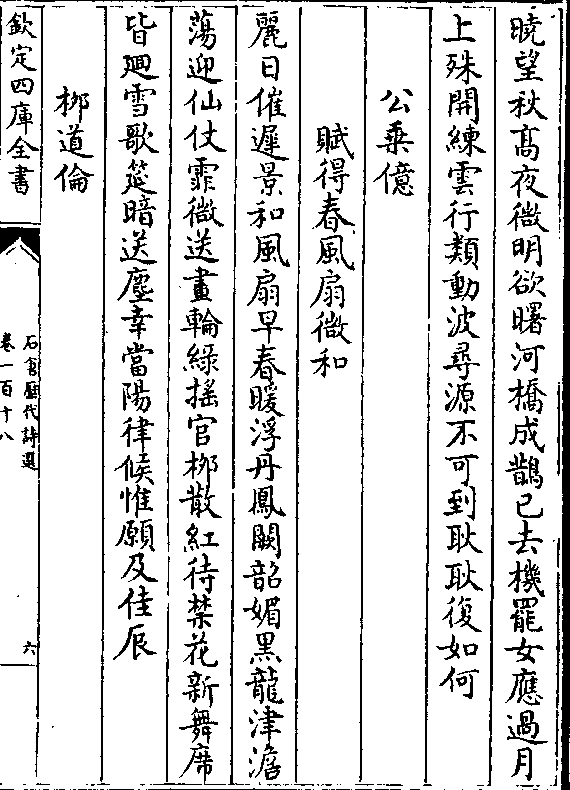 曉望秋髙夜微明欲曙河橋成鵲已去機罷女應過月
上殊開練雲行類動波尋源不可到耿耿復如何
公乗億
賦得春風扇微和
麗日催遲景和風扇早春暖浮丹鳳闕韶媚黒龍津澹
蕩迎仙仗霏微送畫輪緑揺官栁散紅待禁花新舞席
皆廻雪歌筵暗送塵幸當陽律候惟願及佳辰
栁道倫
欽定四庫全書
石倉歴代詩選
卷一百十八
六